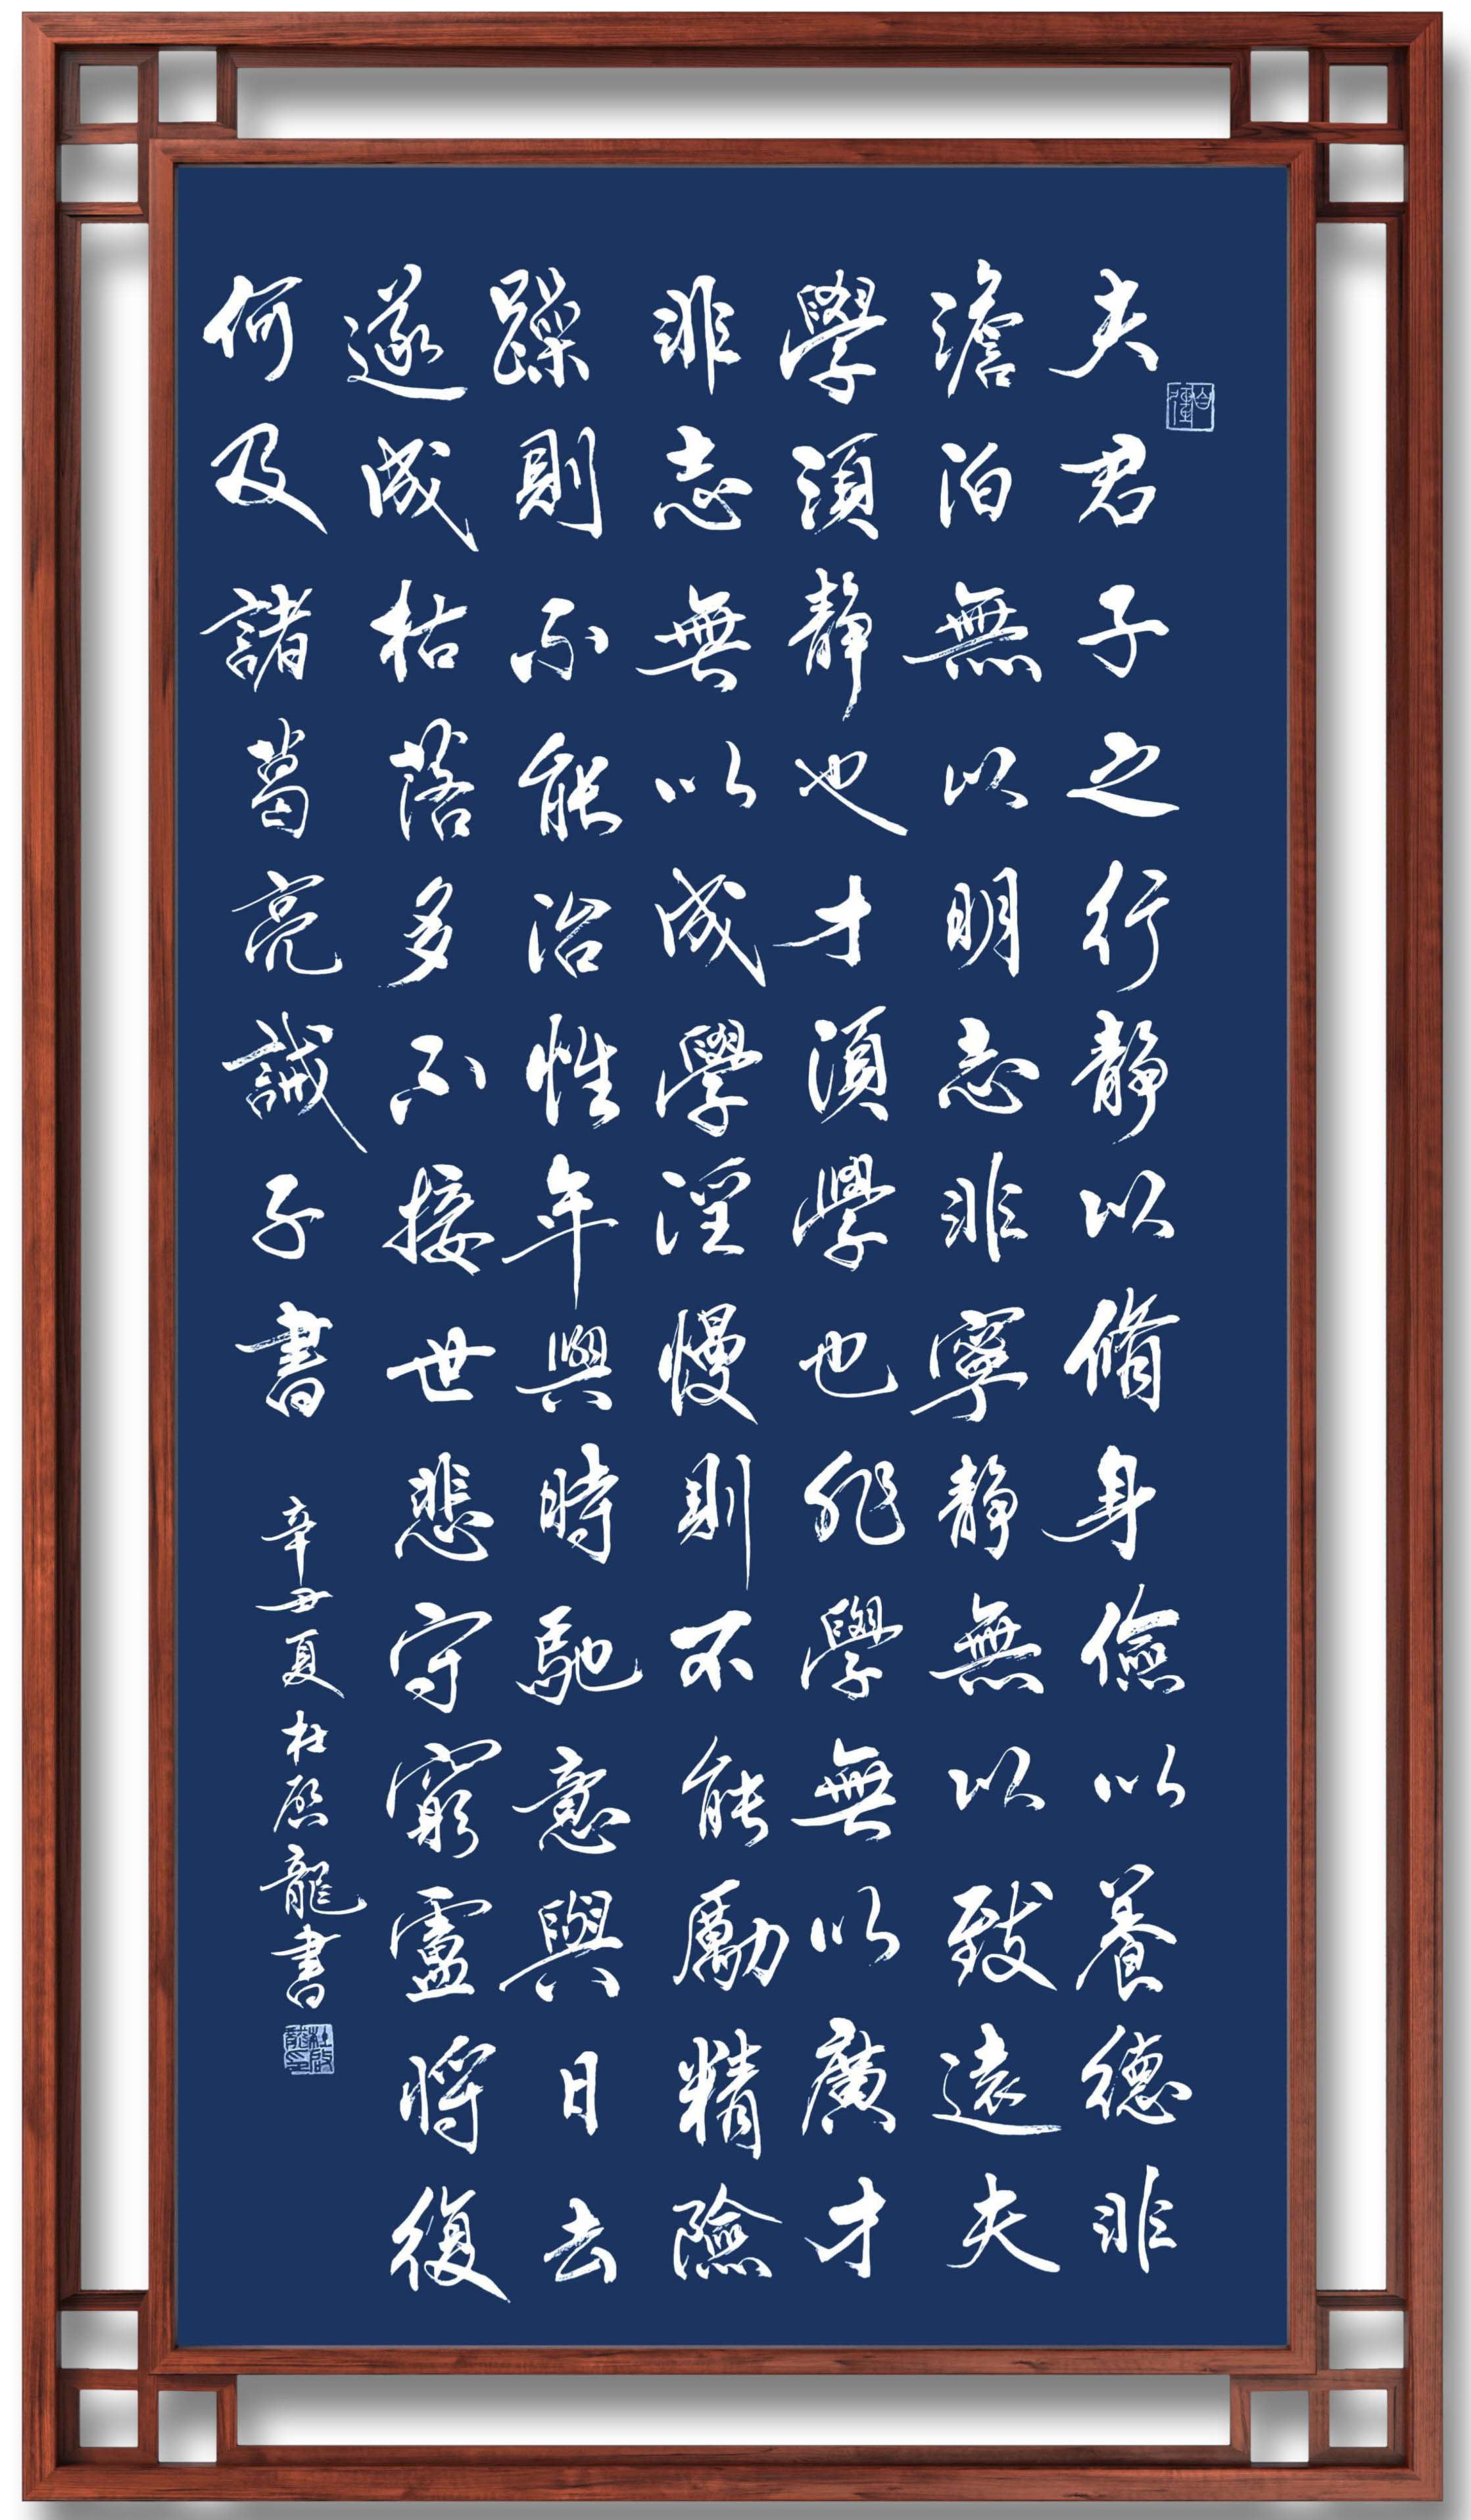 夫君子之行静以脩身儉以養德非
澹泊無以明志非寧静無以致遠夫
學須静也才須學也非學無以廣才
非志無以成學淫慢則不能勵精險
躁則不能冶性年與時馳意與日去
遂成枯落多不接世悲守窮廬將復
何及諸葛亮誡子書
辛丑夏杜啟龍書